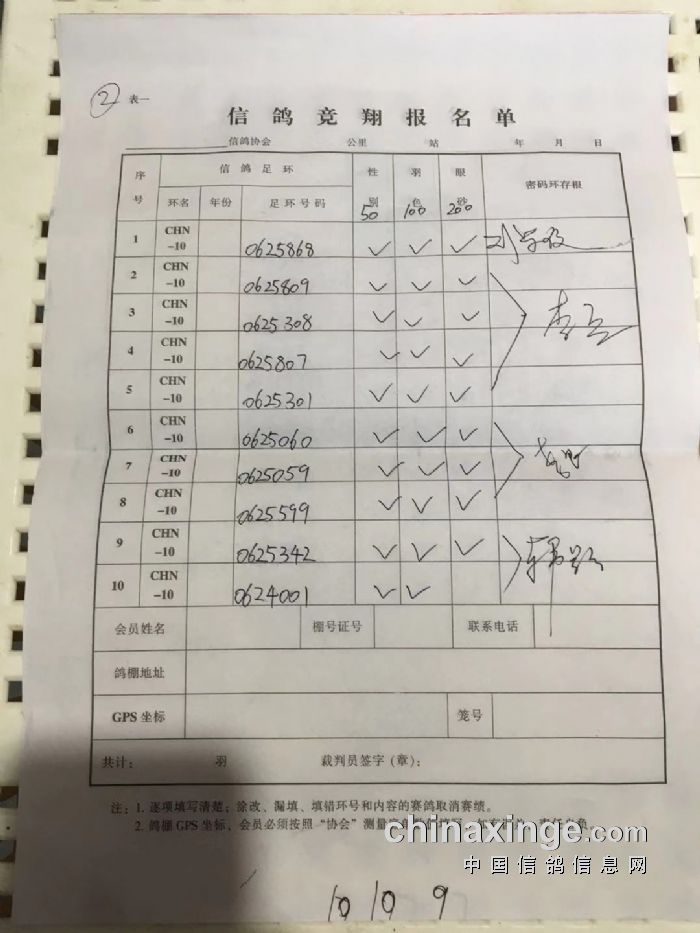 ② 表一
信鸽竞翔报名单
信鸽协会 公里 站 年 月 日
序号 信鸽足环 性别 羽色 眼砂 密码环存根
环名 年份 足环号码 50 100 200
1 CHN-10 0625868 ✓ ✓ ✓
2 CHN-10 0625809 ✓ ✓ ✓
3 CHN-10 0625308 ✓ ✓ ✓
4 CHN-10 0625807 ✓ ✓ ✓
5 CHN-10 0625301 ✓ ✓ ✓
6 CHN-10 0625060 ✓ ✓ ✓
7 CHN-10 0625059 ✓ ✓ ✓
8 CHN-10 0625599 ✓ ✓ ✓
9 CHN-10 0625342 ✓ ✓ ✓
10 CHN-10 0624001 ✓ ✓
会员姓名 棚号证号 联系电话
鸽棚地址
GPS坐标 笼号
共计: 羽 裁判员签字(章):
注: 1. 逐项填写清楚; 涂改、漏填、填错环号和内容的赛鸽取消赛绩。
2. 鸽棚GPS坐标, 会员必须按照“协会”测量
chinaxinge.com
中国信鸽信息网
10 10 9